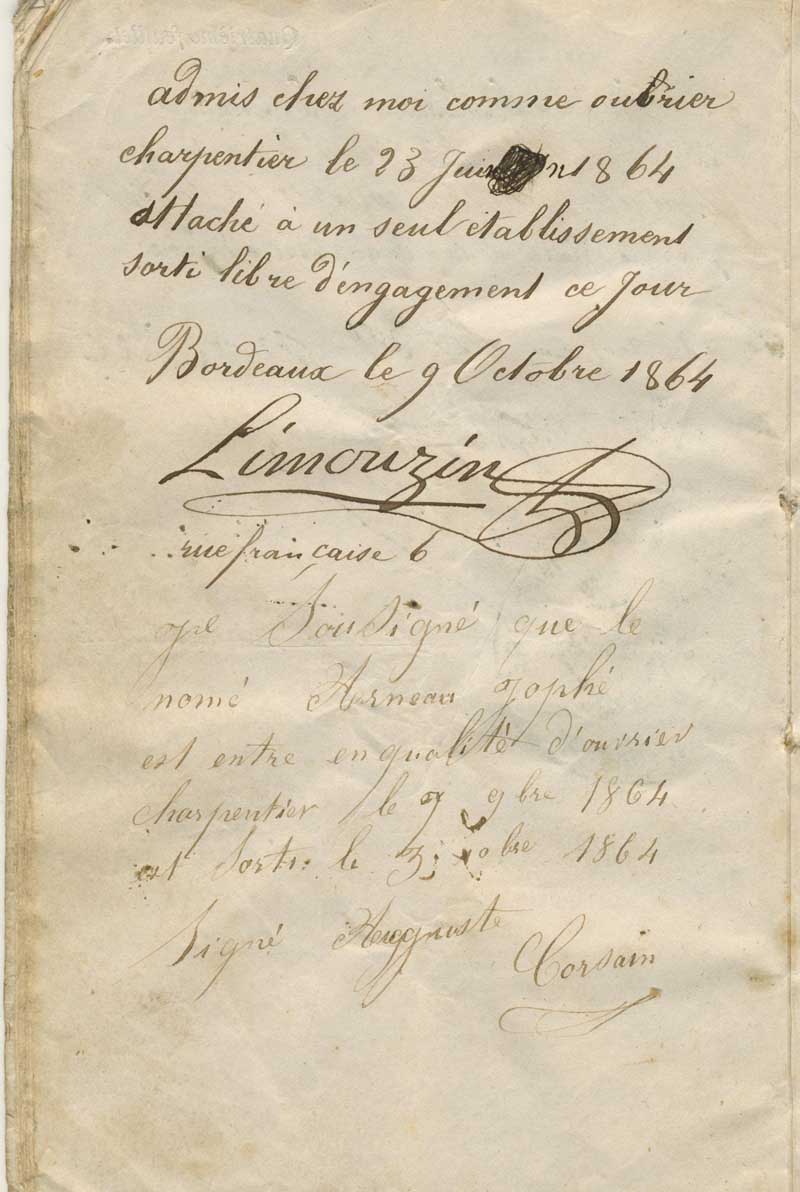 admis chez moi comme oubrier
charpentier le 23 Juin 1864
attaché à un seul etablissement
sorti libre d'engagement ce Jour
Bordeaux le 9 Octobre 1864
Limouzin
rue française 6
Je Sousigné que le
nomé Arneau Jophé
est entre en qualité d'ouvrier
charpentier le 9 9bre 1864
et Sorti le 3 bre 1864
Signé Auguste
Corsain